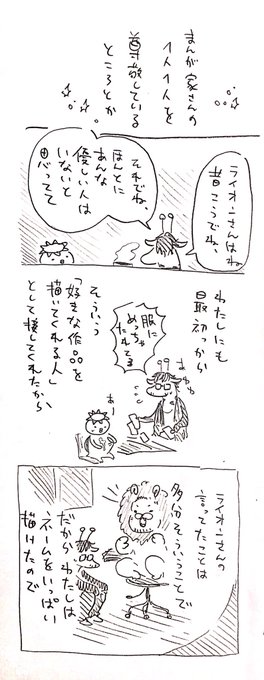 まんが家さんの
1人1人を
尊敬している
ところとか
ライオンさんはね
昔こうでね、
それでね、
ほんとに
あんな
優しい人は
いないと
思ってて
わたしにも
最初っから
服に
めっちゃ
たれてる
まゆゆ
あー
そういう
「好きな作品を
描いてくれる人」
として接してくれたから
ライオンさんの
言ってたことは
多分そういうことで
だからわたしは
ネームをいっぱい
描けたので